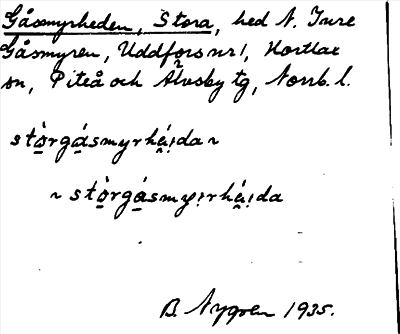 Gåsmyrheden, Stora, hed N. Jure
Gåsmyren, Uddfors nr 1, Hortlax
sn, Piteå och Älvsby tg, Norrb. l.
stò̱rgá̱smyrhá̤i̯da ~
~ stò̱rgá̱smyi̯rhá̤i̯da
B. Nygren 1935.